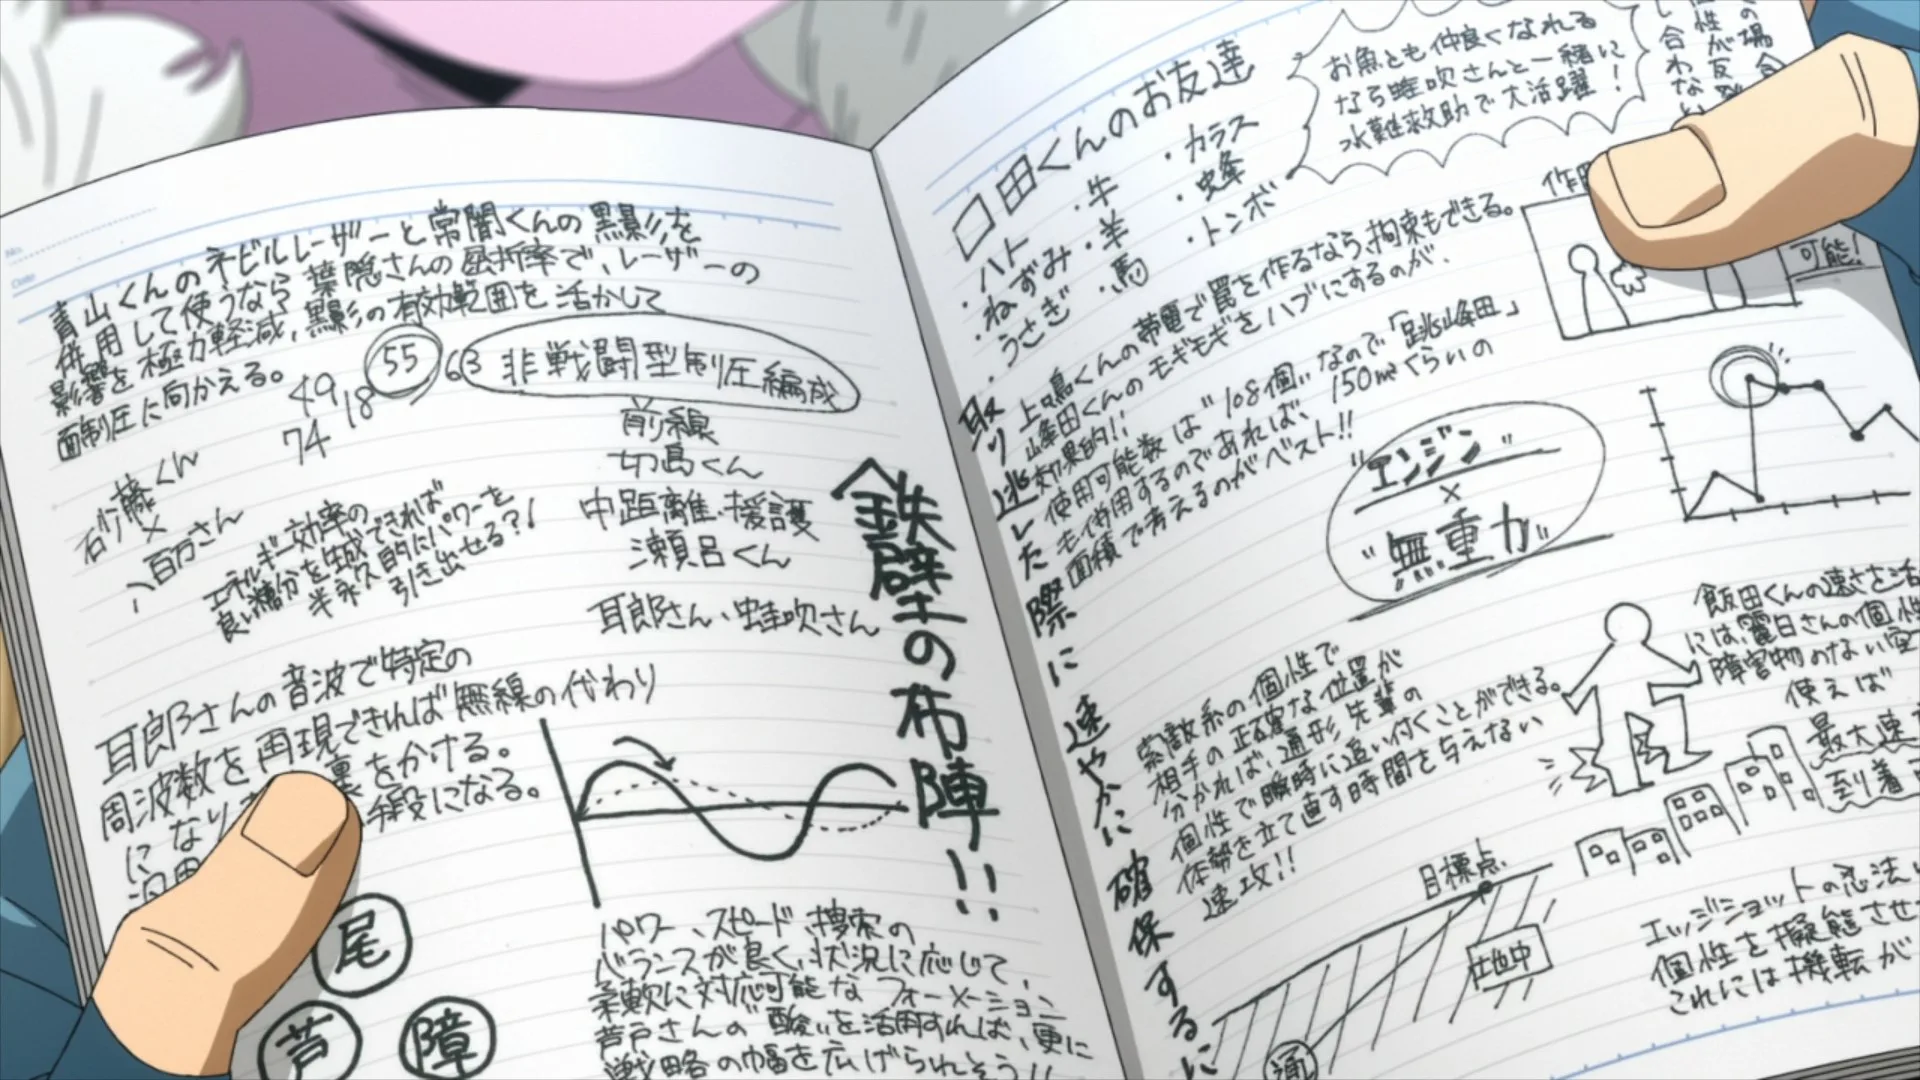 青山くんのネビルレーザーと常闇くんの黒影を
併用して使うなら葉隠さんの屈折率で、レーザーの
影響を極力軽減、黒影の有効範囲を活かして
面制圧に向かえる。
49
18
55
63
74
非戦闘型制圧編成
前線
切島くん
中距離、援護
瀬呂くん
耳郎さん、蛙吹さん
砂藤くん
×
八百万さん
エネルギー効率の
良い糖分を生成できれば
半永久的にパワーを
引き出せる?!
鉄壁の布陣!!
耳郎さんの音波で特定の
周波数を再現できれば無線の代わり
になり
裏をかける。
手段になる。
尾
芦
障
パワー、スピード、捜索の
バランスが良く、状況に応じて、
柔軟に対応可能なフォーメーション
芦戸さんの"酸"を活用すれば、更に
戦略の幅を広げられそう!!
口田くんのお友達
・ハト
・ねずみ
・うさぎ
・牛
・羊
・馬
・カラス
・蜂
・トンボ
お魚とも仲良くなれる
なら蛙吹さんと一緒に
水難救助で大活躍!
の場合
性が友
し合わない
可能!
・上鳴くんの帯電で罠を作るなら、拘束もできる。
峰田くんのモギモギをハブにするのが、
効果的!!
使用可能数は"108個"なので「跳峰田」
も併用するのであれば、150m²くらいの
面積で考えるのがベスト!!
取り逃した際に速やかに確保するに
"エンジン"
×
"無重力"
索敵系の個性で
相手の正確な位置が
分かれば、通形先輩の
個性で瞬時に追い付くことができる。
体勢を立て直す時間を与えない
速攻!!
飯田くんの速さを活
には、麗日さんの個性
障害物のない空
使えば
最大速
到着可
目標点
通
エッジショットの忍法
個性を擬態させ
これには機転が